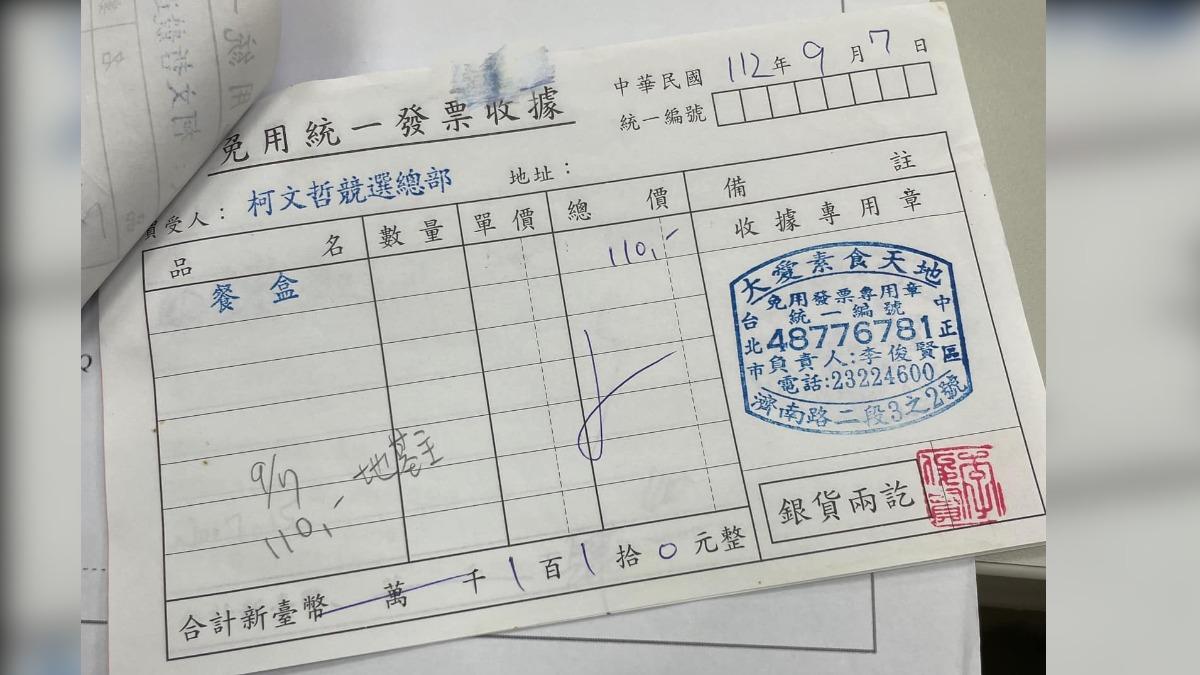 免用統一發票收據
中華民國 112年 9月 7日
統一編號
買受人：柯文哲競選總部 地址：
品名 數量 單價 總價 備註
餐盒 110,-
收據專用章
大愛素食天地
免用發票專用章
統一編號
48776781
負責人:李俊賢
電話:23224600
台北市 中正區
濟南路二段3之2號
9/7 地墓主
110,-
銀貨兩訖
李俊賢
合計新臺幣 萬 千 1 百 1 拾 0 元整